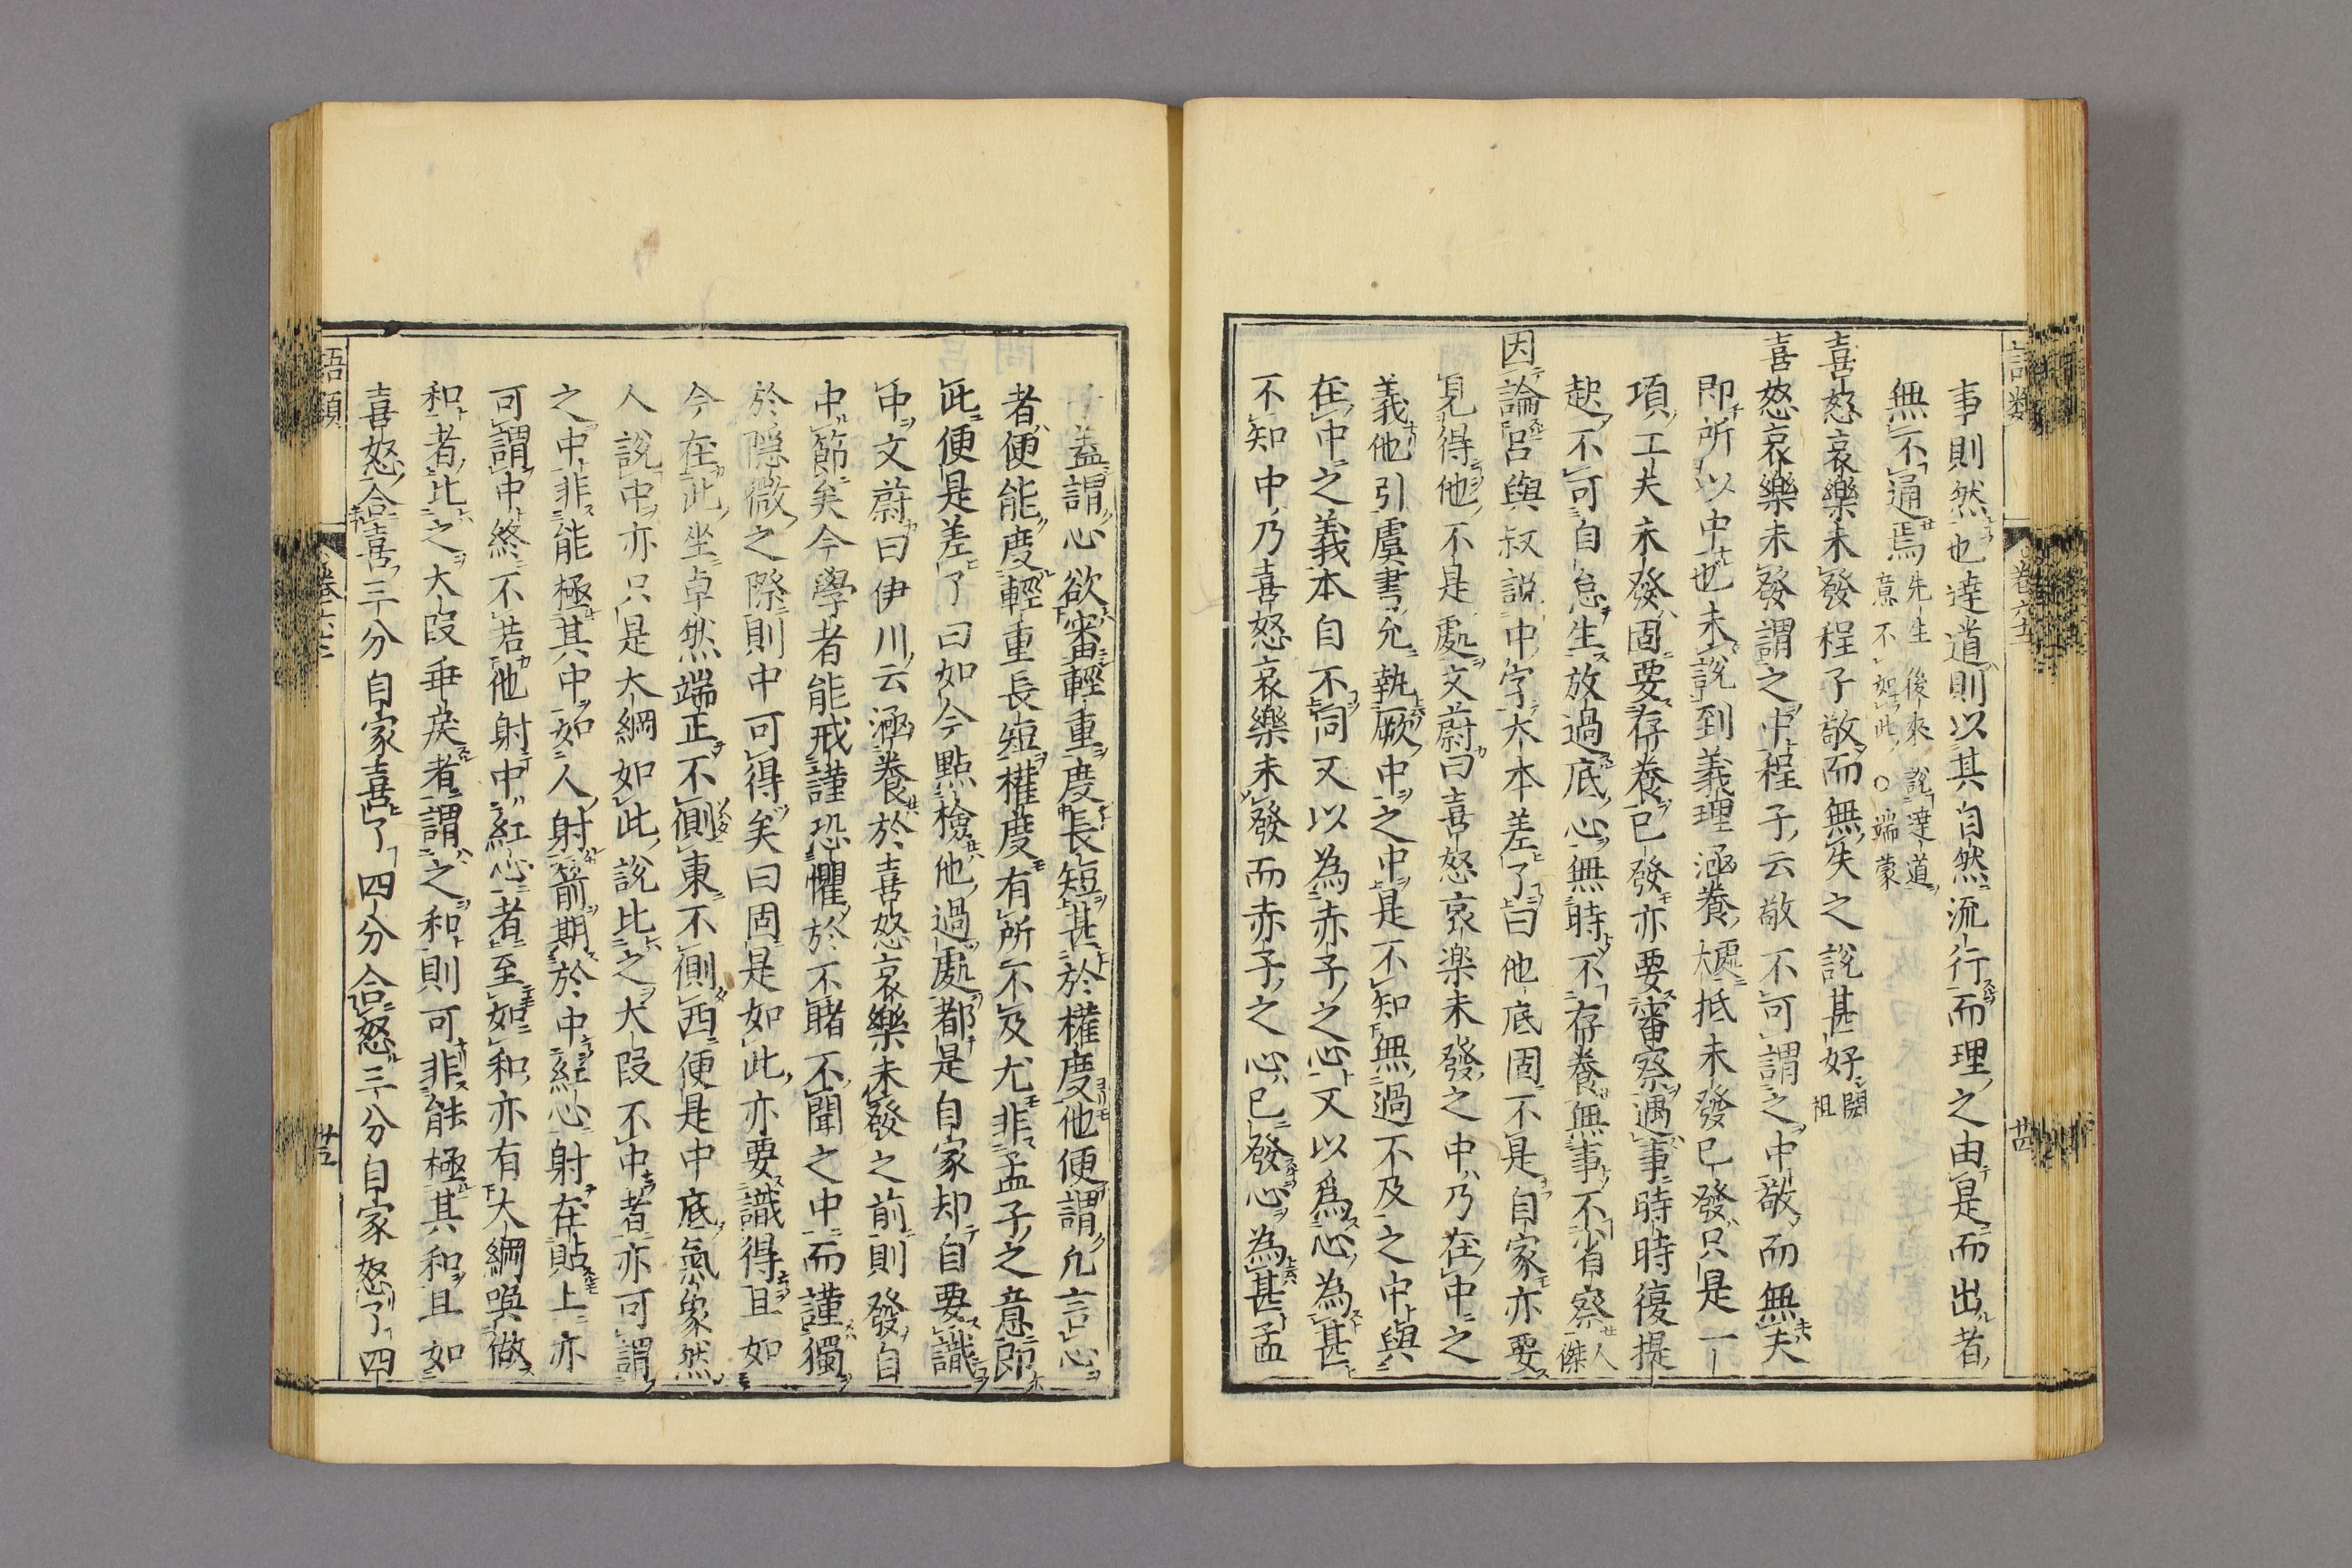 事則然也達道則以其自然流行而理之由是而出者
無不通焉先生後來說達道意不如此○端蒙
喜怒哀樂未發程子敬而無失之說甚好閎祖
喜怒哀樂未發謂之中程子云敬不可謂之中敬而無失
即所以中也未說到義理涵養大處抵未發已發只是一
項工夫未發固要存養已發亦要審察遇事時時復提
起不可自怠生放過底心無時不存養無事不省察人傑
因論呂與叔說中字大本差了曰他底固不是自家亦要
見得他不是處文蔚曰喜怒哀楽未發之中乃在中之
義他引虞書允執厥中之中是不知無過不及之中與
在中之義本自不同又以為赤子之心又以爲心為甚
不知中乃喜怒哀樂未發而赤子之心已發心為甚孟
子蓋謂心欲審輕重度長短甚於權度他便謂允言心
者便能度輕重長短權度有所不及尤非孟子之意即
此便是差了曰如今點檢他過處都是自家却自要識
中文蔚曰伊川云涵養於喜怒哀樂未發之前則發自
中節矣今學者能戒謹恐懼於不睹不聞之中而謹獨
於隱微之際則中可得矣曰固是如此亦要識得且如
今在此坐卓然端正不側東不側西便是中底氣象然
人說中亦只是大綱如此說比之大段不中者亦可謂
之中非能極其中如人射箭期於中紅心射在貼上亦
可謂中終不若他射中紅心者至如和亦有大綱喚做
和者比之大段乖戾者謂之和則可非能極其和且如
喜怒合喜三分自家喜了四分合怒三分自家怒了四
語類
卷六十二
廿四
語類
卷六十二
廿五